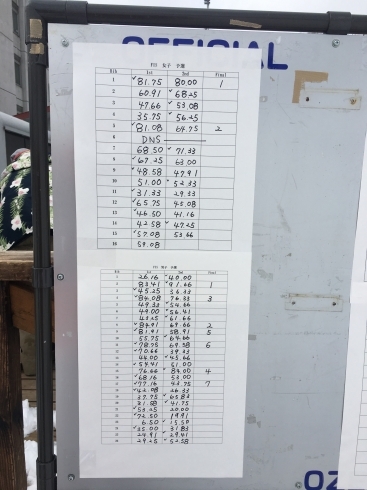 OFFICIAL
FIS 女子 予選
Bib 1st 2nd Final
1 ✓81.75 80.00 1
2 60.91 ✓68.25
3 47.66 ✓53.08
4 35.75 ✓56.25
5 ✓81.08 64.75 2
6 DNS
7 68.50 ✓71.33
8 ✓67.25 63.00
9 ✓48.58 ✓47.91
10 51.00 ✓52.33
11 ✓31.33 29.33
12 ✓65.75 45.08
13 ✓46.50 41.16
14 42.58 ✓47.25
15 ✓57.08 53.66
16 59.08
FIS 男子 予選
Bib 1st 2nd Final
26.16 ✓40.00
83.41 ✓91.66 1
✓45.25 36.33
✓84.08 76.33 3
49.33 ✓54.66
49.00 ✓56.41
43.25 ✓61.66
✓84.91 69.66 2
✓81.91 58.91 5
55.75 ✓64.66
✓78.75 69.58 6
✓70.66 39.33
44.00 ✓45.66
✓54.41 51.00
✓76.66 ✓84.00 4
✓68.16 53.00
✓77.16 43.75 7
✓42.08 26.33
37.75 ✓65.83
31.58 ✓41.75
✓53.25 20.00
✓72.50 19.91
6.50 ✓15.50
✓35.00 31.83
24.91 ✓29.41
29.25 ✓52.58
OZ